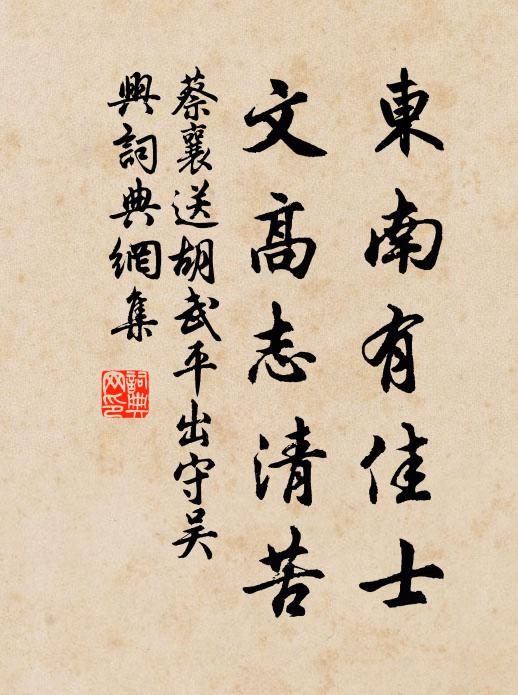 東南有佳士
文高志清苦
蔡襄送胡武平出守吴
興詞典網集
詞典
网印